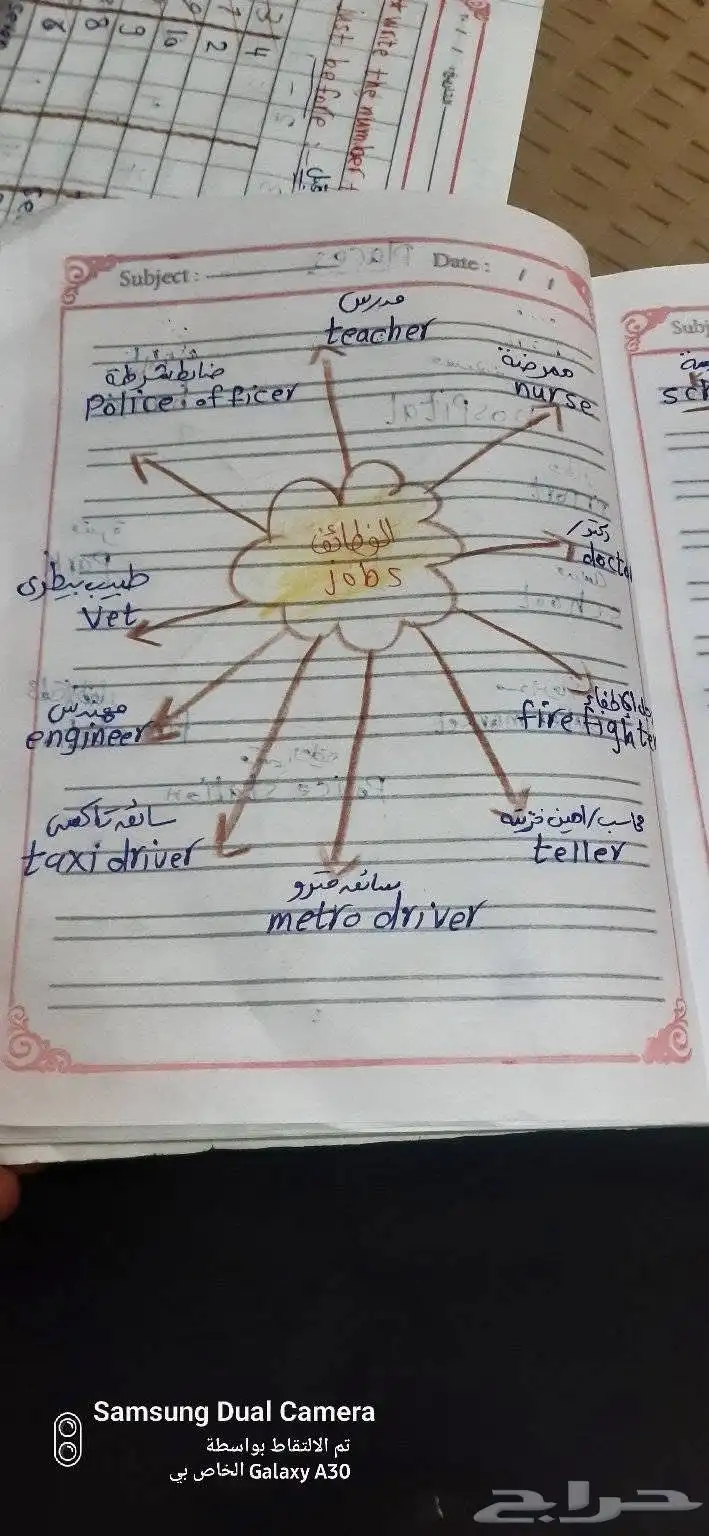 * write the number
just before :
قبل
3 4
2
10
9
8
Subject :
Date : / /
مدرس
teacher
ضابط شرطة
Police officer
ممرضة
nurse
الوظائف
jobs
دكتور
doctor
طبيب بيطرى
Vet
مهندس
engineer
fire fighter
سائق تاكسى
taxi driver
محاسب/امين خزينه
teller
سائق مترو
metro driver
Subj
sch
Samsung Dual Camera
تم الالتقاط بواسطة
Galaxy A30 الخاص بي
حراج